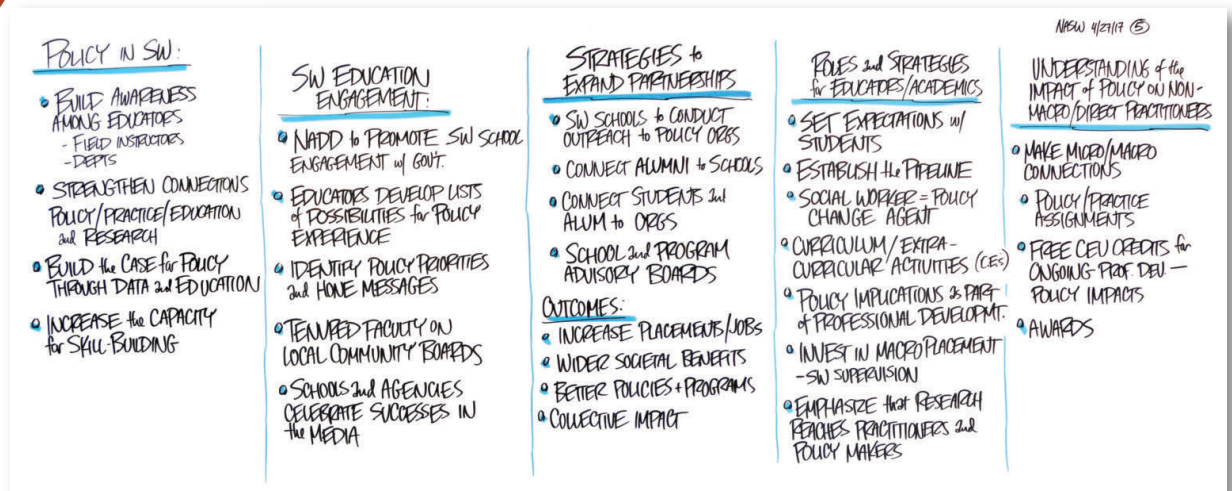 NASW 4/27/17 5
POLICY IN SW:
BUILD AWARENESS
AMONG EDUCATORS
- FIELD INSTRUCTORS
- DEPTS
STRENGTHEN CONNECTIONS
POLICY/PRACTICE/EDUCATION
and RESEARCH
BUILD the CASE for POLICY
THROUGH DATA and EDUCATION
INCREASE the CAPACITY
for SKILL-BUILDING
SW EDUCATION
ENGAGEMENT:
NADD to PROMOTE SW SCHOOL
ENGAGEMENT w/ GOVT.
EDUCATORS DEVELOP LISTS
of POSSIBILITIES for POLICY
EXPERIENCE
IDENTIFY POLICY PRIORITIES
and HONE MESSAGES
TENURED FACULTY ON
LOCAL COMMUNITY BOARDS
SCHOOLS and AGENCIES
CELEBRATE SUCCESSES IN
the MEDIA
STRATEGIES to
EXPAND PARTNERSHIPS
SW SCHOOLS to CONDUCT
OUTREACH to POLICY ORGS
CONNECT ALUMNI to SCHOOLS
CONNECT STUDENTS and
ALUM to ORGS
SCHOOL and PROGRAM
ADVISORY BOARDS
OUTCOMES:
INCREASE PLACEMENTS/JOBS
WIDER SOCIETAL BENEFITS
BETTER POLICIES + PROGRAMS
COLLECTIVE IMPACT
ROLES and STRATEGIES
for EDUCATORS/ACADEMICS
SET EXPECTATIONS w/
STUDENTS
ESTABLISH the PIPELINE
SOCIAL WORKER = POLICY
CHANGE AGENT
CURRICULUM/EXTRA-
CURRICULAR ACTIVITIES (CEs)
POLICY IMPLICATIONS as PART
of PROFESSIONAL DEVELOPMT.
INVEST IN MACRO PLACEMENT
- SW SUPERVISION
EMPHASIZE that RESEARCH
REACHES PRACTITIONERS and
POLICY MAKERS
UNDERSTANDING of the
IMPACT of POLICY ON NON-
MACRO/DIRECT PRACTITIONERS
MAKE MICRO/MACRO
CONNECTIONS
POLICY/PRACTICE
ASSIGNMENTS
FREE CEU CREDITS for
ONGOING PROF. DEV. —
POLICY IMPACTS
AWARDS